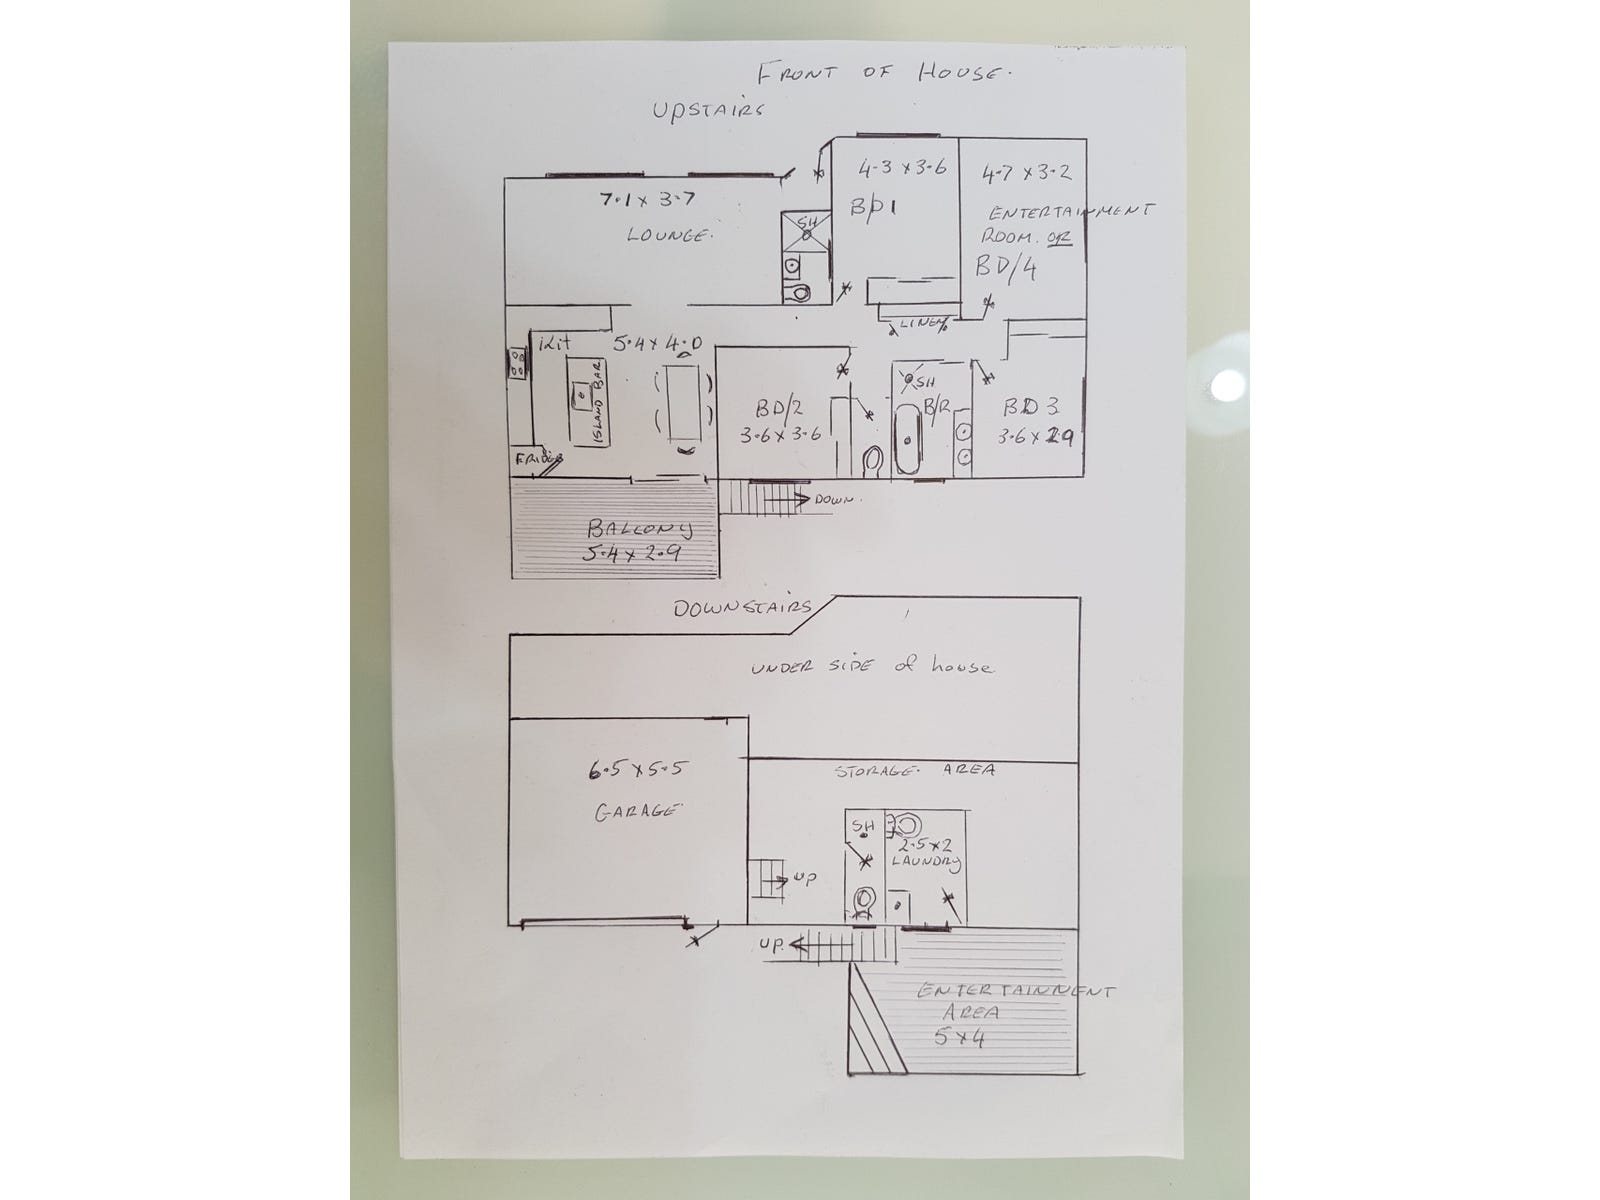 FRONT OF HOUSE.
UPSTAIRS
4.3 x 3.6
BD 1
4.7 x 3.2
ENTERTAINMENT
ROOM. OR
BD/4
7.1 x 3.7
LOUNGE.
SH
LINEN
Kit
5.4 x 4.0
ISLAND BAR
FRIDGE
BD/2
3.6 x 3.6
SH
B/R
BD 3
3.6 x 2.9
DOWN.
BALCONY
5.4 x 2.9
DOWNSTAIRS
UNDER SIDE of house
6.5 x 5.5
GARAGE
STORAGE. AREA
SH
2.5 x 2
LAUNDRY
UP
UP.
ENTERTAINMENT
AREA
5 x 4